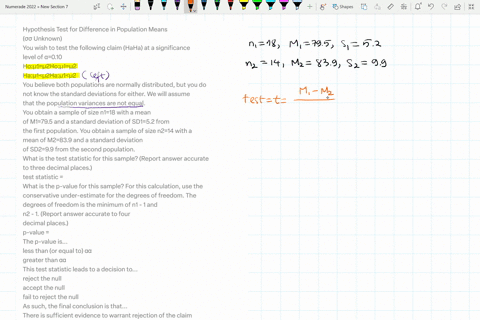 Numerade 2022 > New Section 7
Shapes
Hypothesis Test for Difference in Population Means
(σσ Unknown)
You wish to test the following claim (HaHa) at a significance
level of α=0.10
(left)
You believe both populations are normally distributed, but you do
not know the standard deviations for either. We will assume
that the population variances are not equal.
You obtain a sample of size n1=18 with a mean
of M1=79.5 and a standard deviation of SD1=5.2 from
the first population. You obtain a sample of size n2=14 with a
mean of M2=83.9 and a standard deviation
of SD2=9.9 from the second population.
What is the test statistic for this sample? (Report answer accurate
to three decimal places.)
test statistic =
What is the p-value for this sample? For this calculation, use the
conservative under-estimate for the degrees of freedom. The
degrees of freedom is the minimum of n1 - 1 and
n2 - 1. (Report answer accurate to four
decimal places.)
p-value =
The p-value is...
less than (or equal to) αα
greater than αα
This test statistic leads to a decision to...
reject the null
accept the null
fail to reject the null
As such, the final conclusion is that...
There is sufficient evidence to warrant rejection of the claim
n₁=18, M₁=79.5, S₁=5.2
n₂=14, M₂=83.9, S₂=9.9
test=t= M₁-M₂